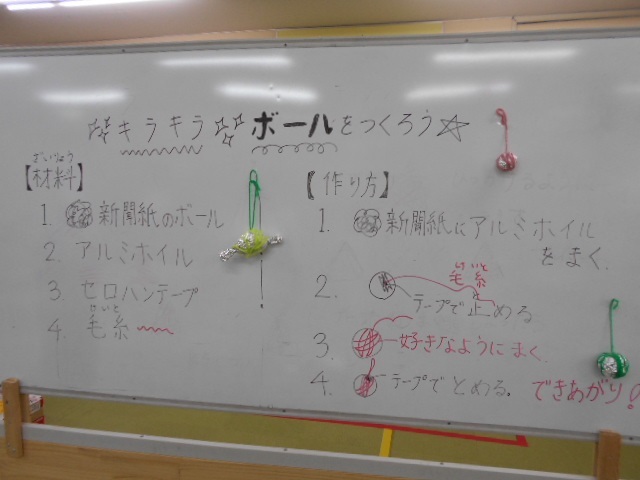 キラキラボールをつくろう
ざいりょう
【材料】
1. 新聞紙のボール
2. アルミホイル
3. セロハンテープ
けいと
4. 毛糸
【作り方】
1. 新聞紙にアルミホイル
をまく。
けいと
毛糸
2. テープで止める
3. 好きなようにまく。
4. テープでとめる。できあがり!